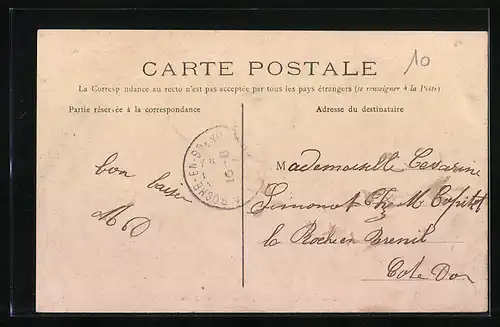 10
CARTE POSTALE
La Correspondance au recto n'est pas acceptée par tous les pays étrangers (se renseigner à la Poste)
Partie réservée à la correspondance
Adresse du destinataire
LA ROCHE-EN-B
bon baiser
MD
Mademoiselle Cesarine
Simonot Chz M
la Roche en Brenil
Cote Dor